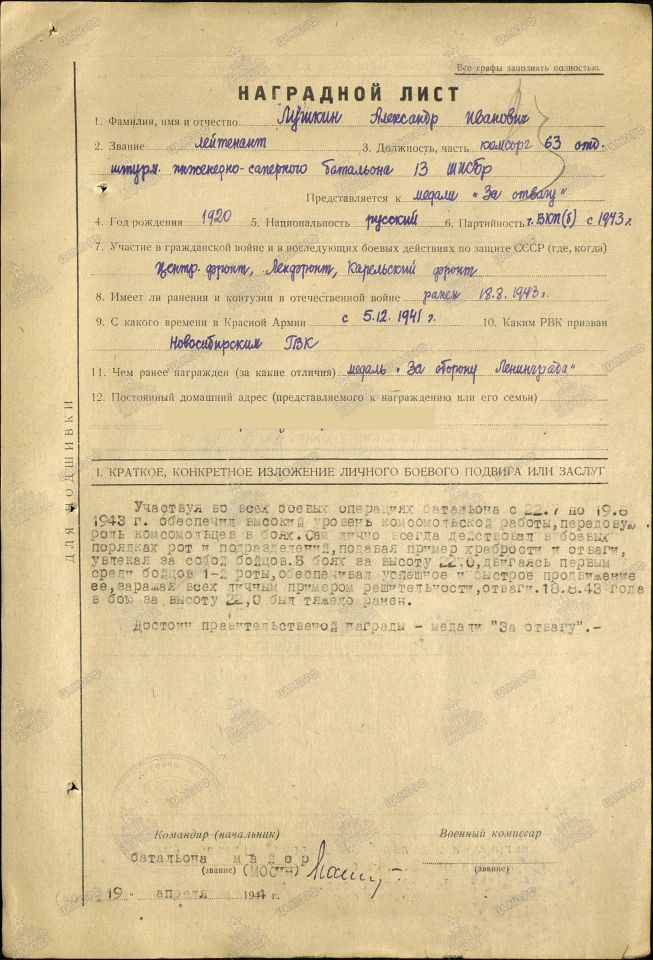 Все графы заполнять полностью.
НАГРАДНОЙ ЛИСТ
1. Фамилия, имя и отчество Лушкин Александр Иванович
2. Звание лейтенант 3. Должность, часть комсорг 63 отд.
штурм. инженерно-саперного батальона 13 ШИСбр
Представляется к медали „За отвагу"
4. Год рождения 1920 5. Национальность русский 6. Партийность ВКП(б) с 1943 г.
7. Участие в гражданской войне и в последующих боевых действиях по защите СССР (где, когда)
Центр. фронт, Ленфронт, Карельский фронт
8. Имеет ли ранения и контузии в отечественной войне ранен 18.8.1943 г.
9. С какого времени в Красной Армии с 5.12.1941 г. 10. Каким РВК призван
Новосибирским ГВК
11. Чем ранее награжден (за какие отличия) медаль „За оборону Ленинграда"
12. Постоянный домашний адрес (представляемого к награждению или его семьи)
ДЛЯ ПОДШИВКИ
I. КРАТКОЕ, КОНКРЕТНОЕ ИЗЛОЖЕНИЕ ЛИЧНОГО БОЕВОГО ПОДВИГА ИЛИ ЗАСЛУГ
Участвуя во всех боевых операциях батальона с 22.7 по 19.8
1943 г. обеспечил высокий уровень комсомольской работы, передовую
роль комсомольцев в боях. Сам лично всегда действовал в боевых
порядках рот и подразделений, подавая пример храбрости и отваги,
увлекая за собой бойцов. В боях за высоту 22,0, двигаясь первым
среди бойцов 1-й роты, обеспечивал успешное и быстрое продвижение
ее, заражая всех личным примером решительности, отваги. 18.8.43 года
в бою за высоту 22,0 был тяжело ранен.
Достоин правительственой награды - медали "За отвагу".-
Командир (начальник) Военный комиссар
батальона майор
(звание) (МОСИН) (звание)
19 апреля 1944 г.